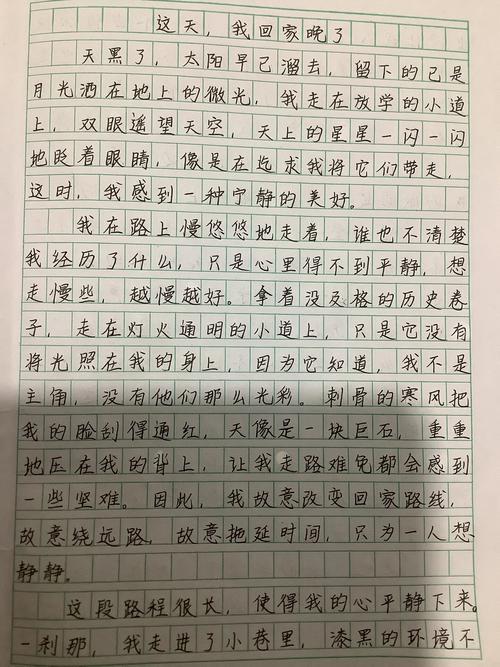 这天，我回家晚了
天黑了，太阳早已溜去，留下的已是
月光洒在地上的微光，我走在放学的小道
上，双眼遥望天空，天上的星星一闪一闪
地眨着眼睛，像是在迄求我将它们带走，
这时，我感到一种宁静的美好。
我在路上慢悠悠地走着，谁也不清楚
我经历了什么，只是心里得不到平静，想
走慢些，越慢越好。拿着没及格的历史卷
子，走在灯火通明的小道上，只是它没有
将光照在我的身上，因为它知道，我不是
主角，没有他们那么光彩。刺骨的寒风把
我的脸刮得通红，天像是一块巨石，重重
地压在我的背上，让我走路难免都会感到
一些坚难。因此，我故意改变回家路线，
故意绕远路，故意拖延时间，只为一人想
静静。
这段路程很长，使得我的心平静下来。
一刹那，我走进了小巷里，漆黑的环境不